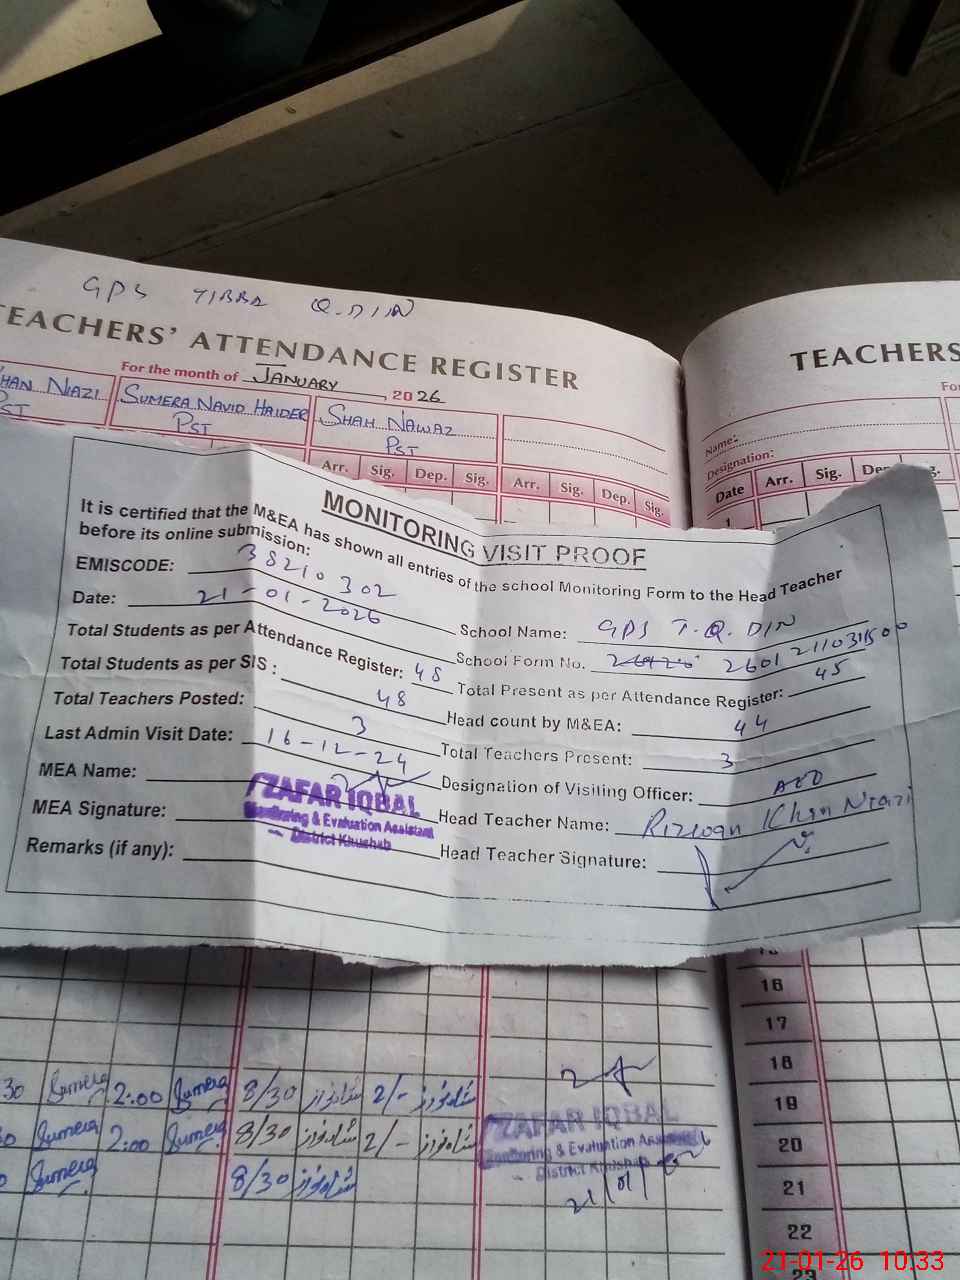 GPS TIBBA Q.DIN
TEACHERS' ATTENDANCE REGISTER
For the month of JANUARY, 2026
HAN NIAZI
PST
SUMERA NAVID HAIDER
PST
SHAH NAWAZ
PST
Arr. Sig. Dep. Sig. Arr. Sig. Dep. Sig.
TEACHERS
Name:
Designation:
Date Arr. Sig.
MONITORING VISIT PROOF
It is certified that the M&EA has shown all entries of the school Monitoring Form to the Head Teacher
before its online submission:
EMISCODE: 38210302
Date: 21-01-2026
School Name: GPS T.Q.DIN
Total Students as per Attendance Register: 48
School Form No. 26012110311500
Total Students as per SIS: 48
Total Present as per Attendance Register: 45
Total Teachers Posted: 3
Head count by M&EA: 44
Last Admin Visit Date: 16-12-24
Total Teachers Present: 3
MEA Name:
Designation of Visiting Officer: AEO
ZAFAR IQBAL
Monitoring & Evaluation Assistant
District Khushab
MEA Signature:
Head Teacher Name: Rizwan Khan Niazi
Remarks (if any):
Head Teacher Signature:
16
17
18
30 Sumera 2:00 Sumera 8/30 شاہنواز 2/- شاہنواز
19
Sumera 2:00 Sumera 8/30 شاہنواز 2/- شاہنواز
20
Sumera 8/30 شاہنواز
21
ZAFAR IQBAL
Monitoring & Evaluation Assistant
District Khushab
22
23
21-01-26 10:33